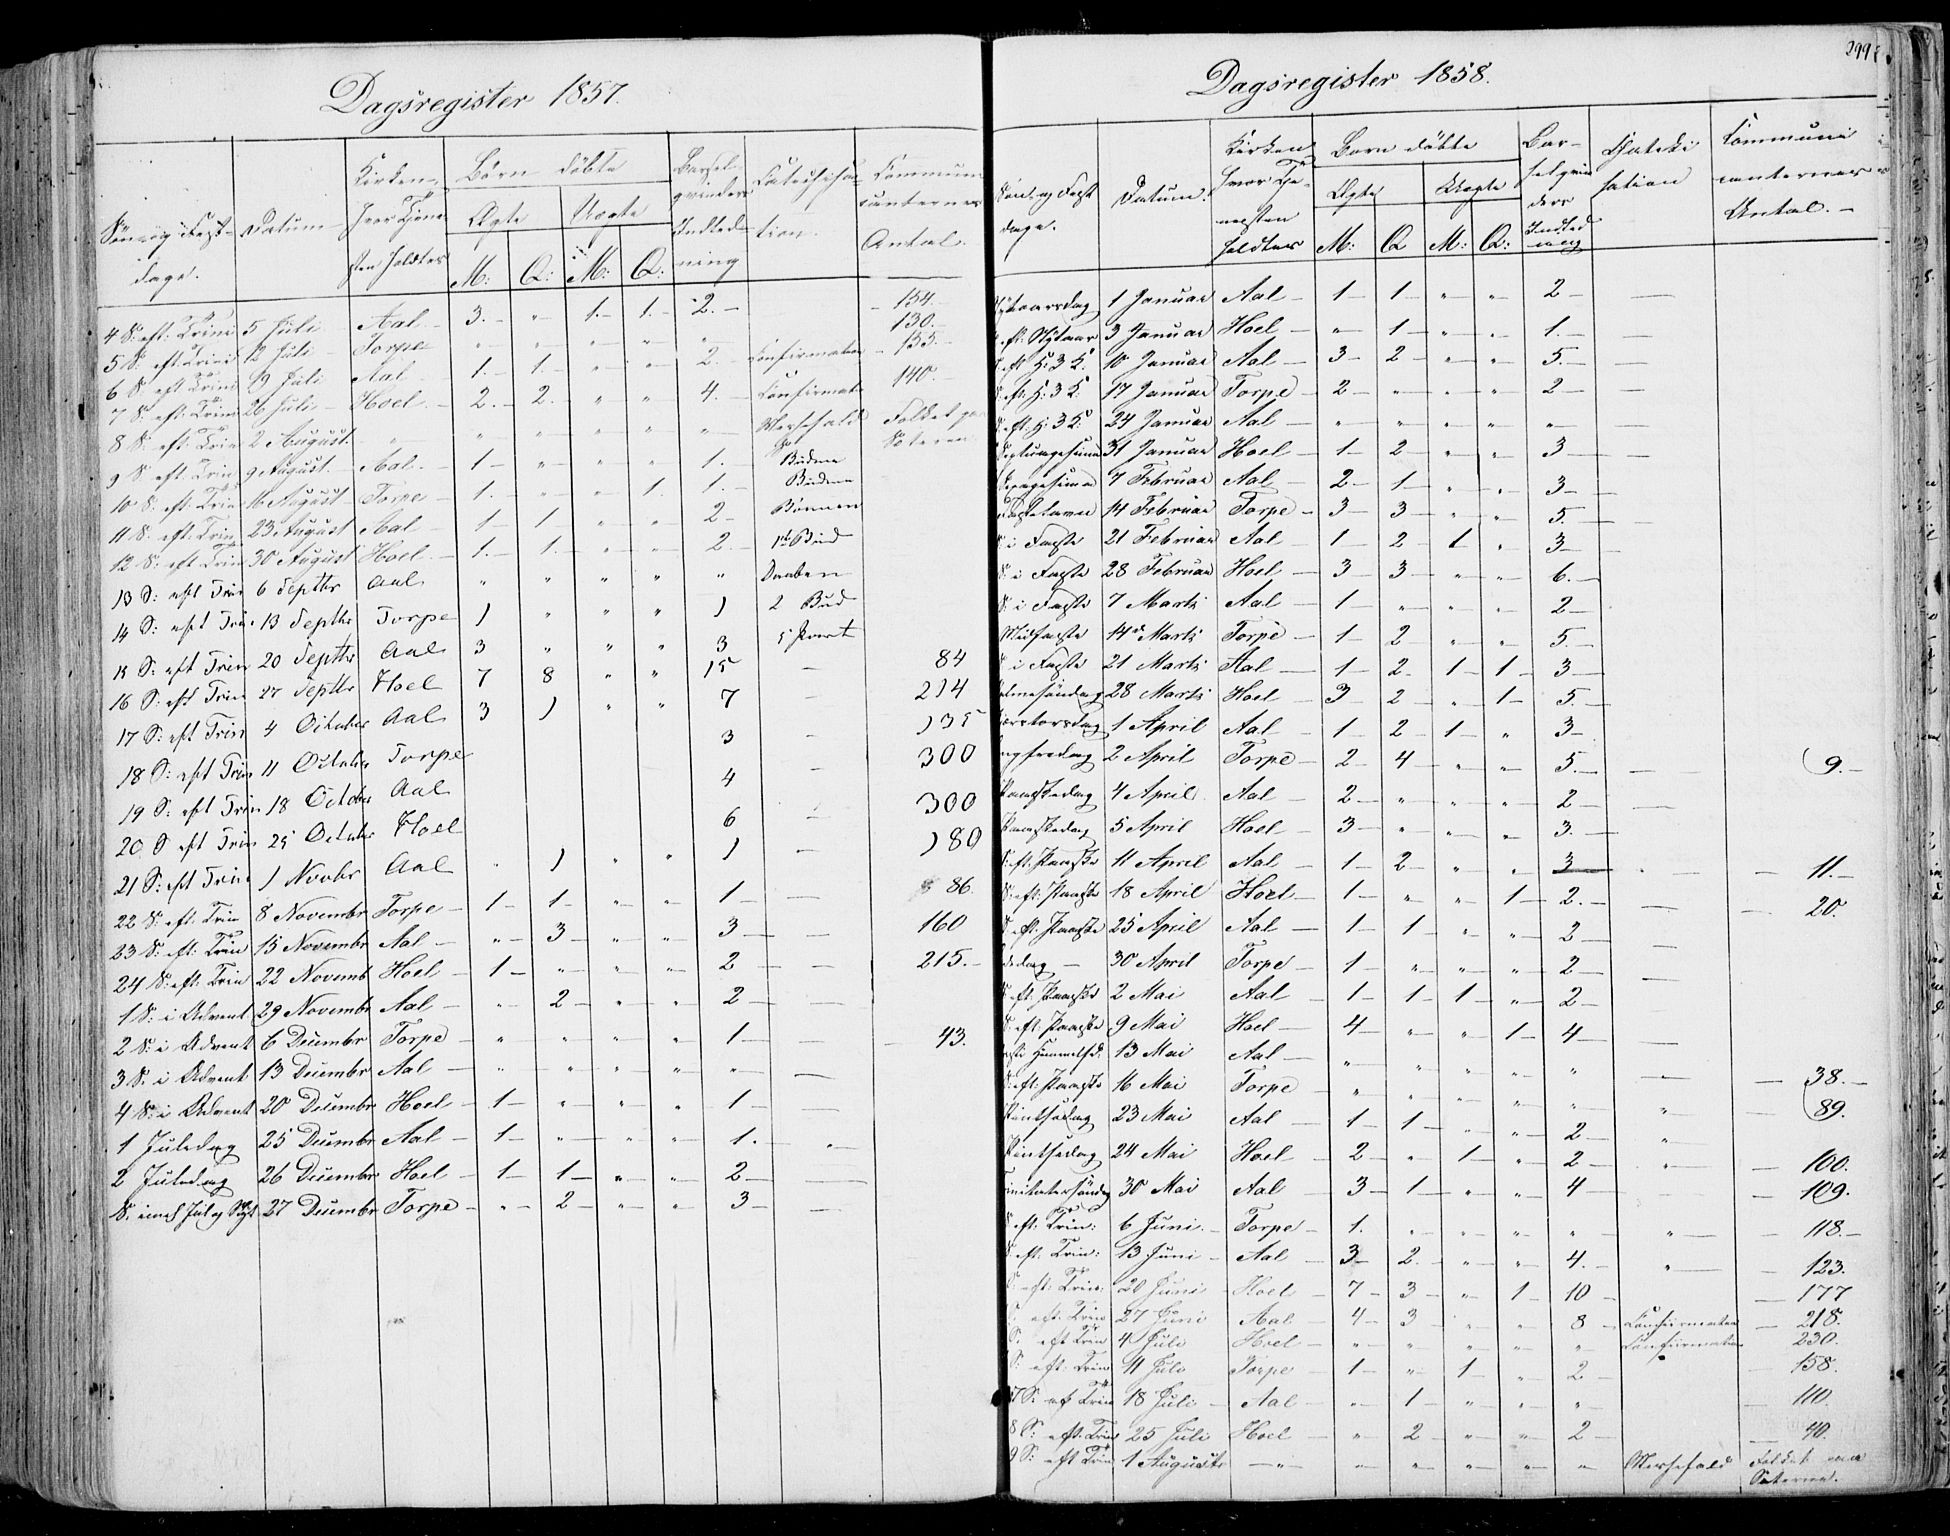 Dagsregister 1857.
Søn og Fest-dage. Datum Kirken hvor Tjenesten holdtes Børn døbte Ægte M: Q: Uægte M: Q: Barselqvinders Indledning Catechisation. Communicanternes Antal.
4 S: eft: Trini 5 Juli Aal 3. „ 1. 1. 2. 154.
5 S: eft Trini 12 Juli Torpe „ „ „ „ „ 130.
6 S eft Trini 19 Juli Aal 1. 1. „ „ 2. Confirmation 155.
7 S eft: Trini 26 Juli Hoel 2. 2. „ „ 4. Confirmation 140.
8 S: eft: Trin 2 August „ „ „ „ „ „ Messefald Folket paa Sæteren
9 S eft Trin 9 August Aal 1 „ „ „ 1. Budene
10 S. eft. Trin 16 August Torpe 1. „ „ 1. 1. Budene
11 S. eft. Trin 23 August Aal 1 1 „ „ 2 Bønnen
12 S: eft Trin 30 August Hoel 1. 1. „ „ 2. 1st Bud
13 S: eft Trin 6 Septbr Aal „ „ „ „ „ Daaben
14 S: eft Trin 13 Septbr Torpe 1 „ „ „ 1 2 Bud
15 S: eft Trin 20 Septbr Aal 3 „ „ „ 3 5 Part 84
16 S: eft Trin 27 Septbr Hoel 7 8 „ „ 15 214
17 S: eft Trin 4 October Aal 3 1 „ „ 7 135
18 S: eft Trin 11 October Torpe 3 300
19 S: eft Trin 18 October Aal 4 300
20 S eft Trin 25 October Hoel 6 180
21 S: eft Trin 1 Novbr Aal „ 1 „ „ 1 86
22 S: eft. Trin 8 Novembr Torpe 1 1 „ „ 1 160
23 S: eft: Trin 15 Novembr Aal „ 3 „ „ 3 215.
24 S: eft: Trin 22 Novemb Hoel 1 „ „ „ 2
1 S: i Advent 29 Novembr Aal „ 2 „ „ 2
2 S: i Advent 6 Decembr Torpe „ „ „ „ 1 43.
3 S. i Advent 13 Decembr Aal „ „ „ „ „
4 S: i Advent 20 Decembr Hoel 1 „ „ „ 1
1 Juledag 25 Decembr Aal 1 „ „ „ 1. „
2 Juledag 26 Decembr Hoel 1 1 „ „ 2
S. imel Jul og Nyt 27 Decembr Torpe „ 2 „ „ 3
299
Dagsregister 1858.
Søn og Fest dage. Datum. Kirken hvor Tjenesten holdtes Børn døbte Ægte M: Q Uægte M: Q: Barselqvinders Indledning Chatekisation Communicanternes Antal.
Nytaarsdag 1 Januar Aal 1 1 „ „ 2
eft. Nytaar 3 Januar Hoel „ 1 „ „ 1.
eft H: 3 K: 10 Januar Aal 3 2 „ „ 5.
S. eft: H: 3 K: 17 Januar Torpe 2 „ „ „ 2
S: eft. H: 3 K: 24 Januar Aal „ „ „ „ „
Septuagesima 31 Januar Hoel 1 2 „ „ 3
Sexagesima 7 Februar Aal 2 1 „ „ 3
Fastelavn 14 Februar Torpe 3 3 „ „ 5.
S i Faste 21 Februar Aal 1 2 1 „ 3
S: i Faste 28 Februar Hoel 3 3 „ „ 6.
S: i Faste 7 Marts Aal 1 „ „ „ 2
Midfaste 14 Marts Torpe 1 2 „ „ 5.
S i Faste 21 Marts Aal 1 2 1 1 3
Palmesøndag 28 Marts Hoel 3 2 „ 1 5.
Skjærtorsdag 1 April Aal 1 2 1 „ 3
Langfredag 2 April Torpe 2 4 „ „ 5. 9.
Paaskedag 4 April Aal 2 „ „ „ 2
Paaskedag 5 April Hoel 3 „ „ „ 3.
S: eft. Paaske 11 April Aal 1 2 „ „ 3 11.
S: eft: Paaske 18 April Hoel 1 „ „ 1 2. 20.
S eft. Paaske 25 April Aal 1 1 „ „ 2
dedag 30 April Torpe 1 „ „ „ 2
S. eft: Paaske 2 Mai Aal 1 1 1 „ 2
S. eft. Paaske 9 Mai Hoel 4 „ „ 1 4
Christi Himmelfd. 13 Mai Aal „ „ „ „ „ 38.
S. eft: Paaske 16 Mai Torpe „ „ „ „ „ „ 89.
Pintsedag 23 Mai Aal 1 1 „ „ 2 „
Pintsedag 24 Mai Hoel 2 „ 1 „ 2 „ 100.
Trinitatissøndag 30 Mai Aal 3 1 „ „ 4 109.
S eft. Trin: 6 Juni Torpe 1. „ „ „ „ „ 118.
S. eft. Trin: 13 Juni Aal 3 2. „ „ 4. „ 123.
S: eft: Trin: 20 Juni Hoel 7 3 „ 1 10 177
S: eft. Trin 27 Juni Aal 4 3 „ „ 8 Confirmation 218.
S. eft Trin 4 Juli Hoel „ „ „ „ „ Confirmation 230.
S: eft. Trin 11 Juli Torpe 1 „ 1 „ 2 158.
7 S: eft Trin 18 Juli Aal „ 1 „ „ „ 110.
8 S: eft. Trin 25 Juli Hoel „ 2 „ „ 2 40.
9 S: eft Trin 1 Auguste „ „ „ „ „ „ Messefald Folket paa Sæterne.